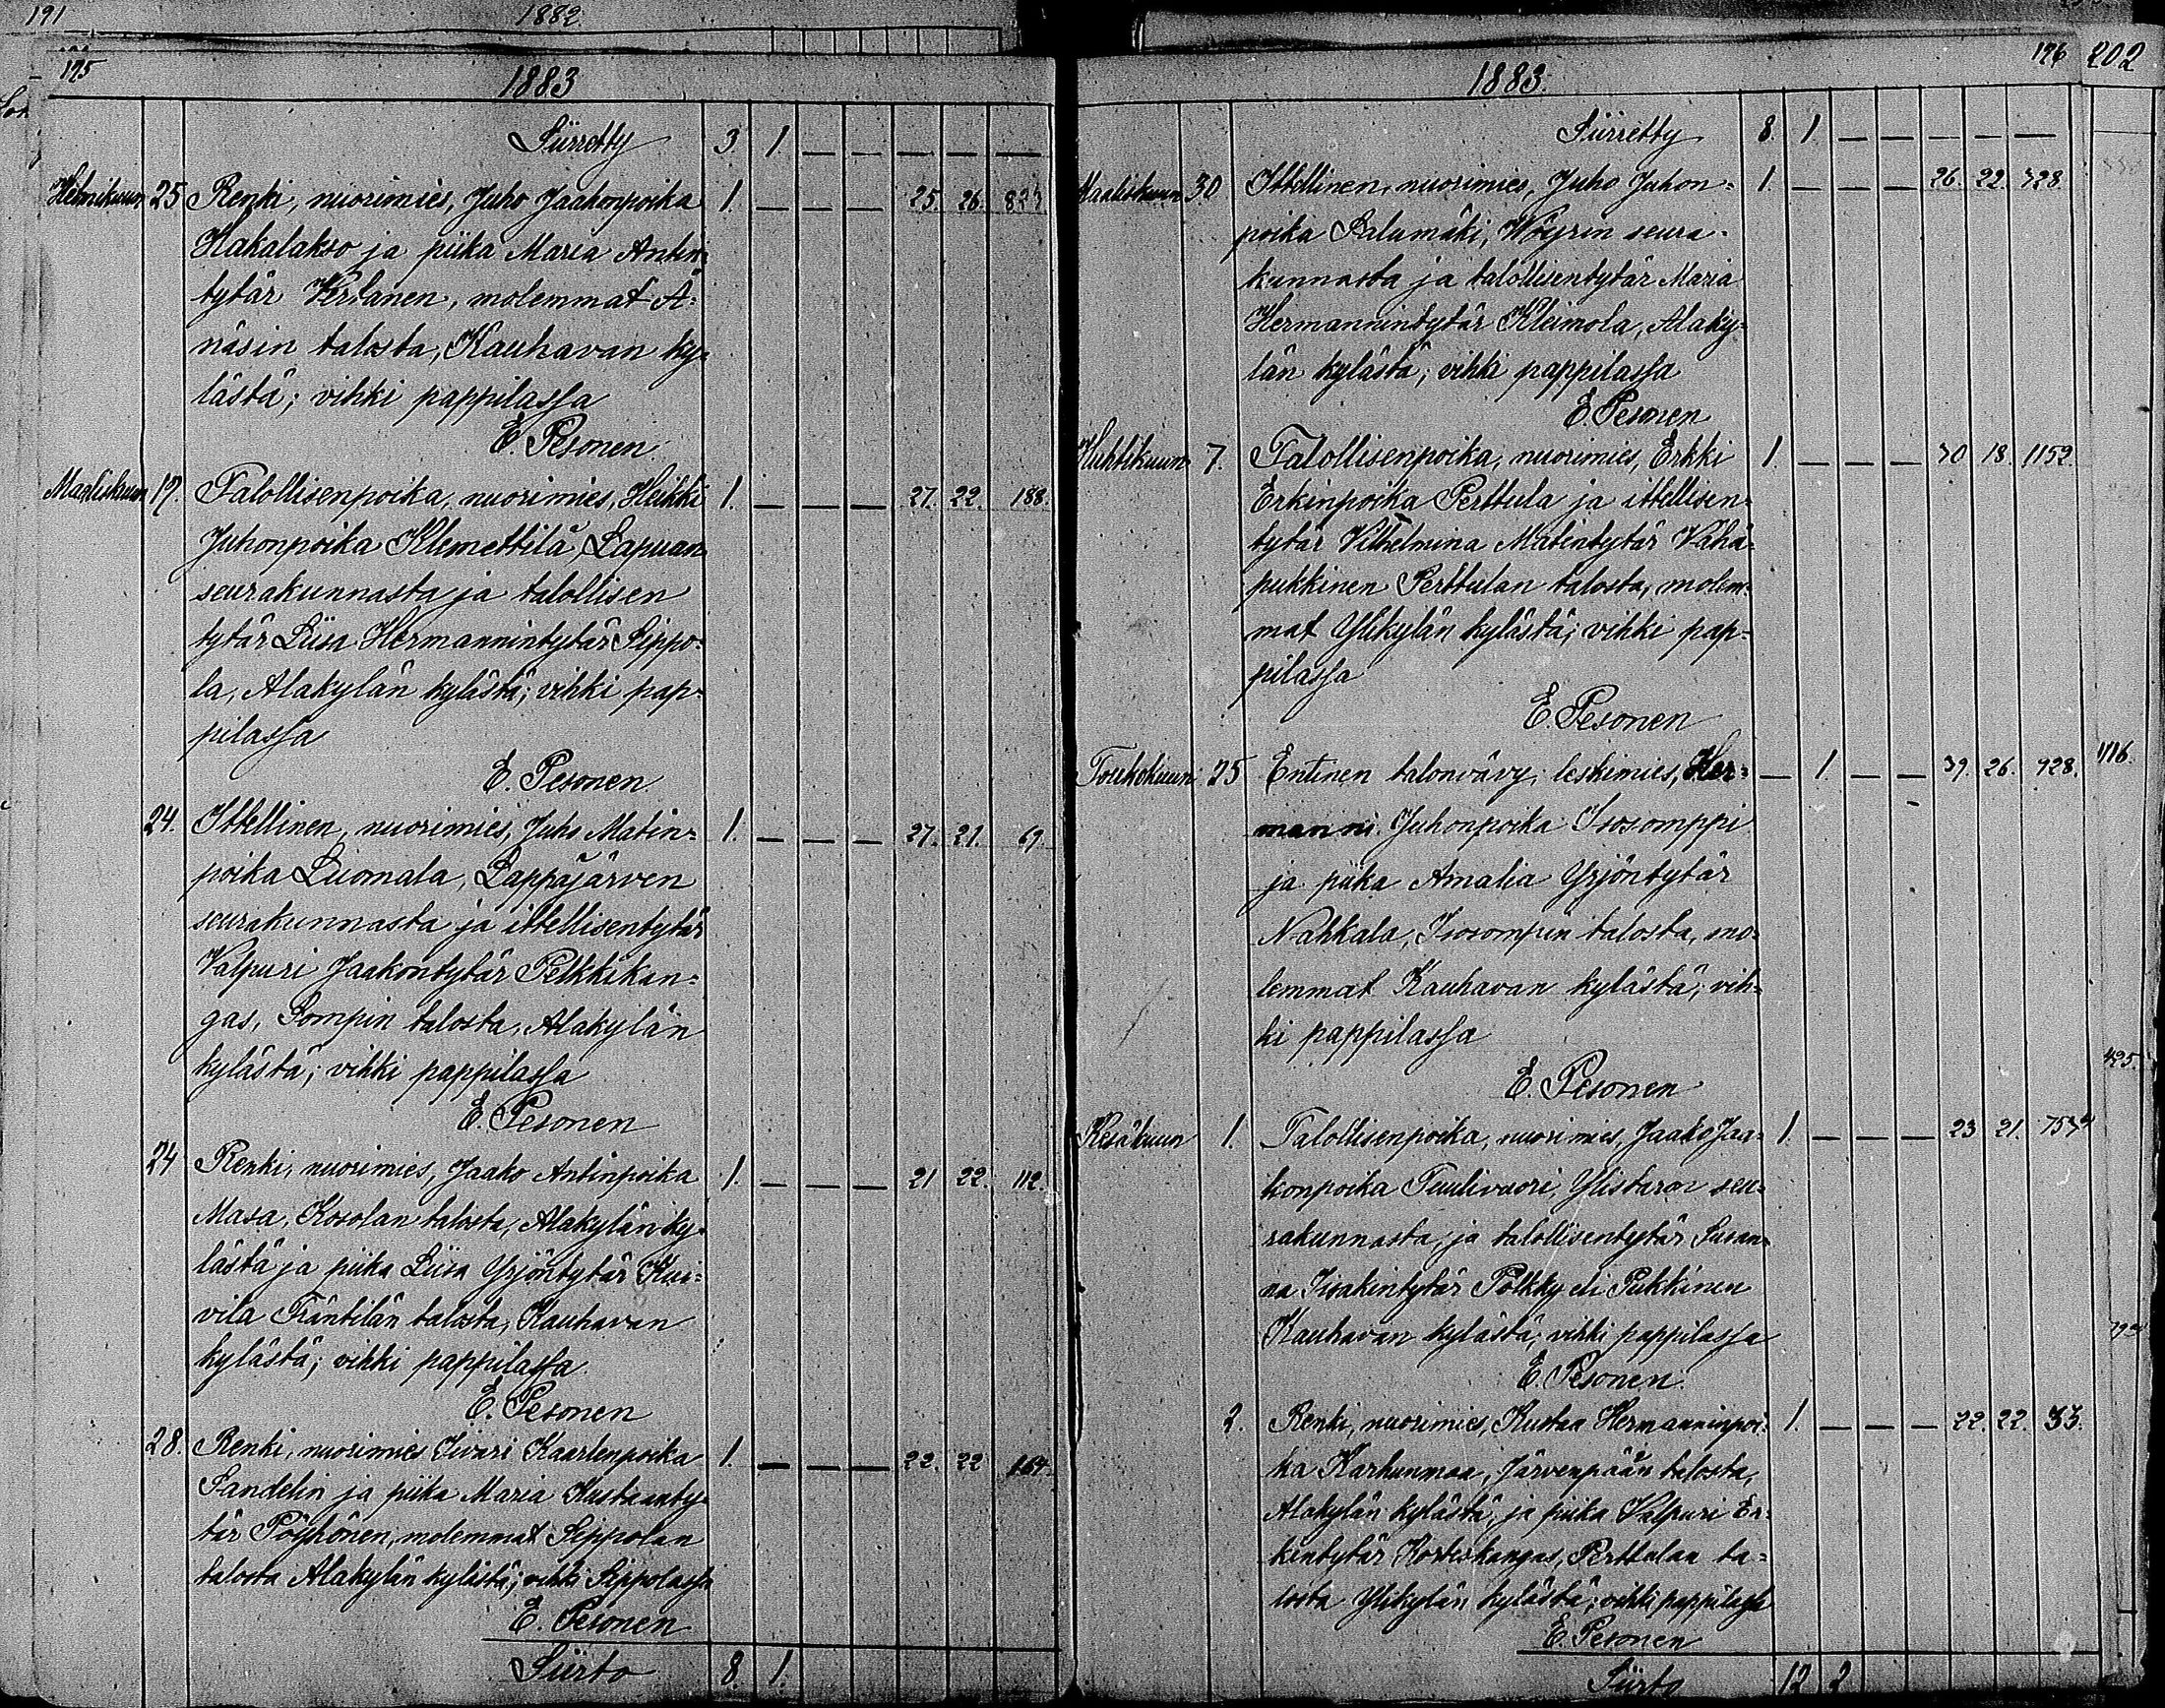 191 1882.
175 1883
Siirretty 3 1. — — — — —
Helmikuun 25 Renki, nuorimies, Juho Jaakonpoika 1. — — — 25. 26.
Hakalakso ja piika Maria Antin-
tytär Kertanen, molemmat Ä-
näsin talosta, Kauhavan ky-
lästä; vihki pappilassa
E. Pesonen
Maaliskuun 17. Talollisenpoika, nuorimies, Heikki 1. — — — 27. 22. 188.
Juhonpoika Klemettilä, Lapuan
seurakunnasta ja talollisen
tytär Liisa Hermannintytär Sippo-
la, Alakylän kylästä; vihki pap-
pilassa
E. Pesonen
24. Ittellinen, nuorimies, Juho Matin- 1. — — — 27. 21. 69.
poika Luomala, Lappajärven
seurakunnasta ja ittellisentytär
Valpuri Jaakontytär Pelkkikan-
gas, Sompin talosta, Alakylän
kylästä; vihki pappilassa
E. Pesonen
24 Renki, nuorimies, Jaako Antinpoika 1. — — — 21 22. 112.
Masa, Kosolan talosta, Alakylän ky-
lästä ja piika Liisa Yrjöntytär Kui-
vila Fräntilän talosta, Kauhavan
kylästä; vihki pappilassa.
E. Pesonen
28. Renki, nuorimies Iivari Kaarlenpoika 1. — — — 22. 22 164.
Sandelin ja piika Maria Kustaanty-
tär Pöyhönen, molemmat Sippolan
talosta Alakylän kylästä; vihki Sippolassa
E. Pesonen
Siirto 8. 1.
176 202
1883.
Siirretty 8. 1. — — — — —
Maaliskuun 30 Ittellinen, nuorimies, Juho Juhon- 1. — — — 26. 22. 328.
poika Palamäki, Wöyrin seura-
kunnasta ja talollisentytär Maria
Hermannintytär Kleimola, Alaky-
län kylästä; vihki pappilassa
E. Pesonen
Huhtikuun 7. Talollisenpoika, nuorimies, Erkki 1. — — — 30 18. 1152.
Erkinpoika Perttula ja ittellisen-
tytär Vilhelmina Matintytär Vähä-
pukkinen Perttulan talosta, molem-
mat Ylikylän kylästä; vihki pap-
pilassa
E. Pesonen
Toukokuun 25 Entinen talonvävy, leskimies, Her- — 1. — — 39. 26. 928. 1116.
manni Juhonpoika Isosomppi
ja piika Amalia Yrjöntytär
Nahkala, Isosompin talosta, mo-
lemmat Kauhavan kylästä; vih-
ki pappilassa
E. Pesonen
425.
Kesäkuun 1. Talollisenpoika, nuorimies, Jaako Jaa- 1. — — — 23 21.
konpoika Tuulivuori, Ylistaron seu-
rakunnasta, ja talollisentytär Susan-
na Iisakintytär Pölkky eli Pukkinen
Kauhavan kylästä; vihki pappilassa
E. Pesonen.
2. Renki, nuorimies, Kustaa Hermanninpoi- 1. — — — 22. 22. 33.
ka Karhunmaa, Järvenpään talosta,
Alakylän kylästä, ja piika Valpuri Er-
kintytär Korteskangas, Perttulan ta-
losta Ylikylän kylästä; vihki pappilassa
E. Pesonen
Siirto 12 2